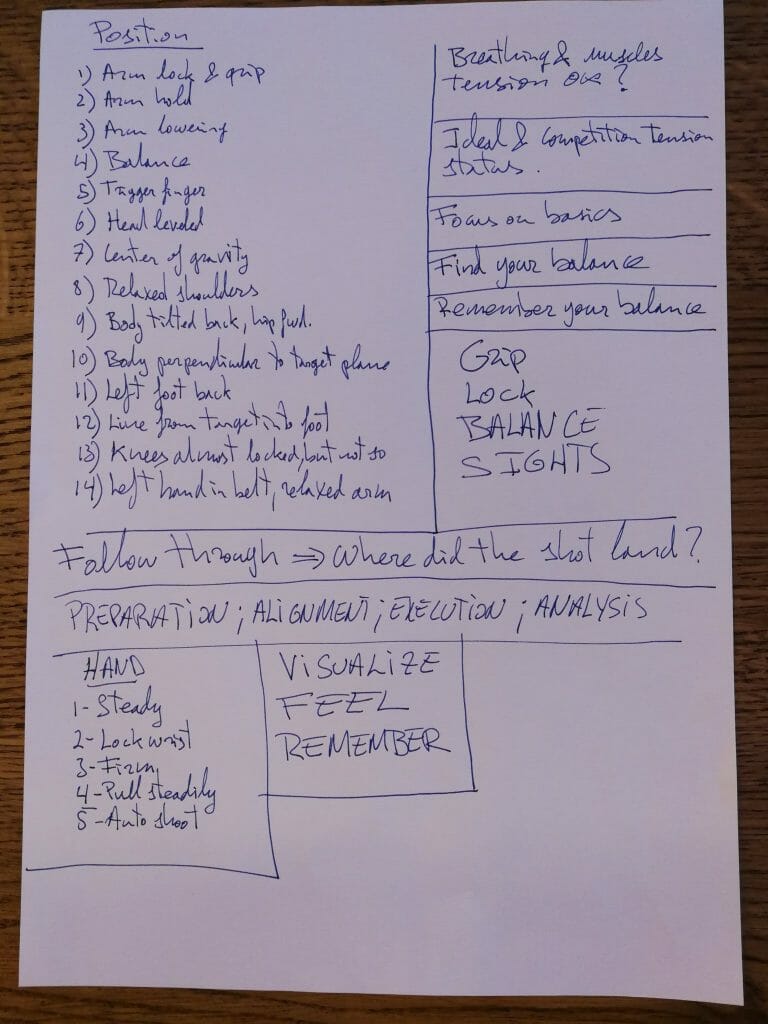 Position
1) Arm lock & grip
2) Arm hold
3) Arm lowering
4) Balance
5) Trigger finger
6) Head leveled
7) Center of gravity
8) Relaxed shoulders
9) Body tilted back, hip fwd.
10) Body perpendicular to target plane
11) Left foot back
12) Line from target into foot
13) Knees almost locked, but not so
14) Left hand in belt, relaxed arm
Breathing & muscles
tension ok?
Ideal & competition tension
status.
Focus on basics
Find your balance
Remember your balance
GRIP
LOCK
BALANCE
SIGHTS
Follow through ⇒ Where did the shot land?
PREPARATION; ALIGNMENT; EXECUTION; ANALYSIS
HAND
1- Steady
2- Lock wrist
3- Firm
4- Pull steadily
5- Auto shoot
VISUALIZE
FEEL
REMEMBER